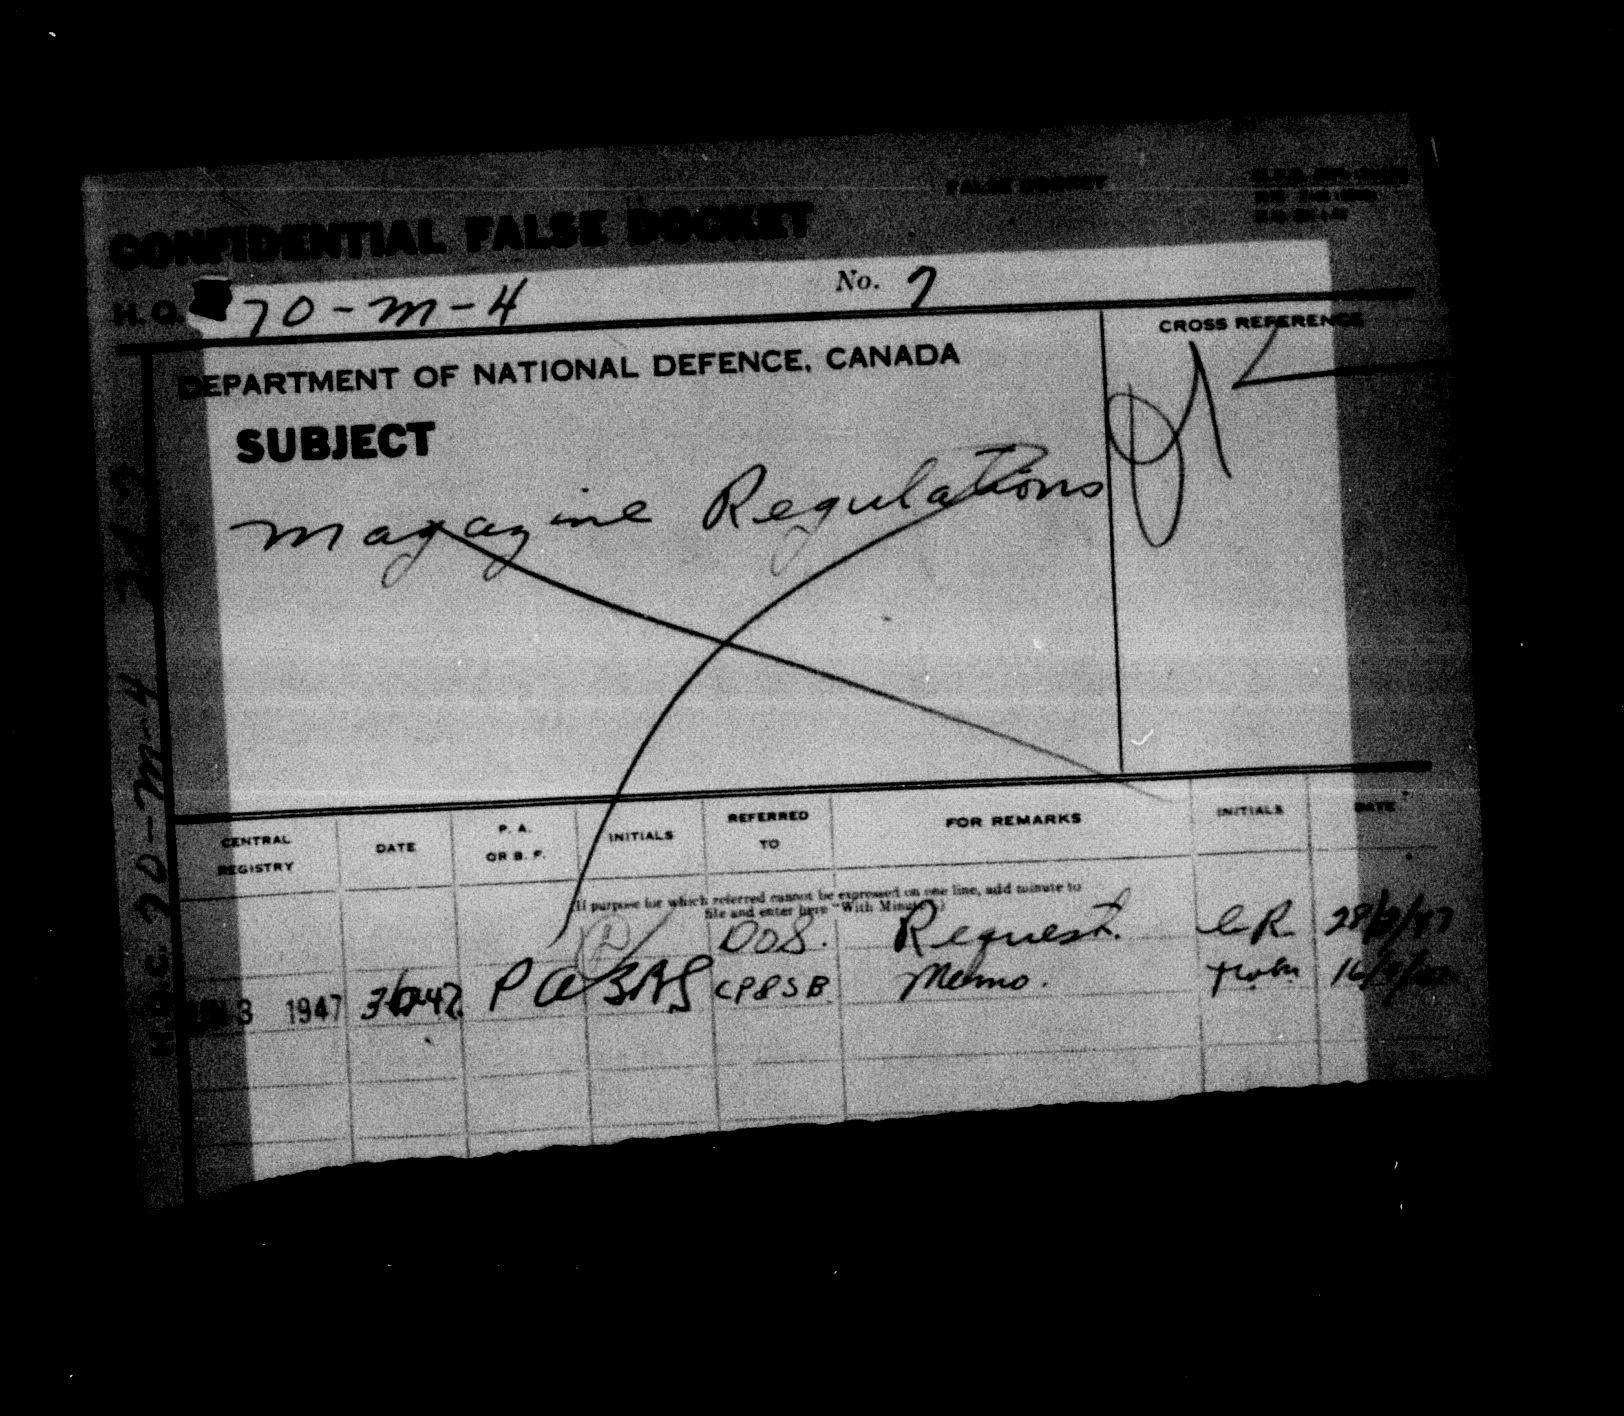 FALSE DOCKET
CONFIDENTIAL FALSE DOCKET
H.Q. 70-M-4 No. 7
CROSS REFERENCE
DEPARTMENT OF NATIONAL DEFENCE, CANADA
SUBJECT
Magazine Regulations
CENTRAL REGISTRY DATE P. A. OR B. F. INITIALS REFERRED TO FOR REMARKS INITIALS DATE
(If purpose for which referred cannot be expressed on one line, add minute to
file and enter here "With Minute")
DOS. Request. CR 28/2/47
3 1947 PA CPSSB Memo.
H.Q.C. 70-M-4